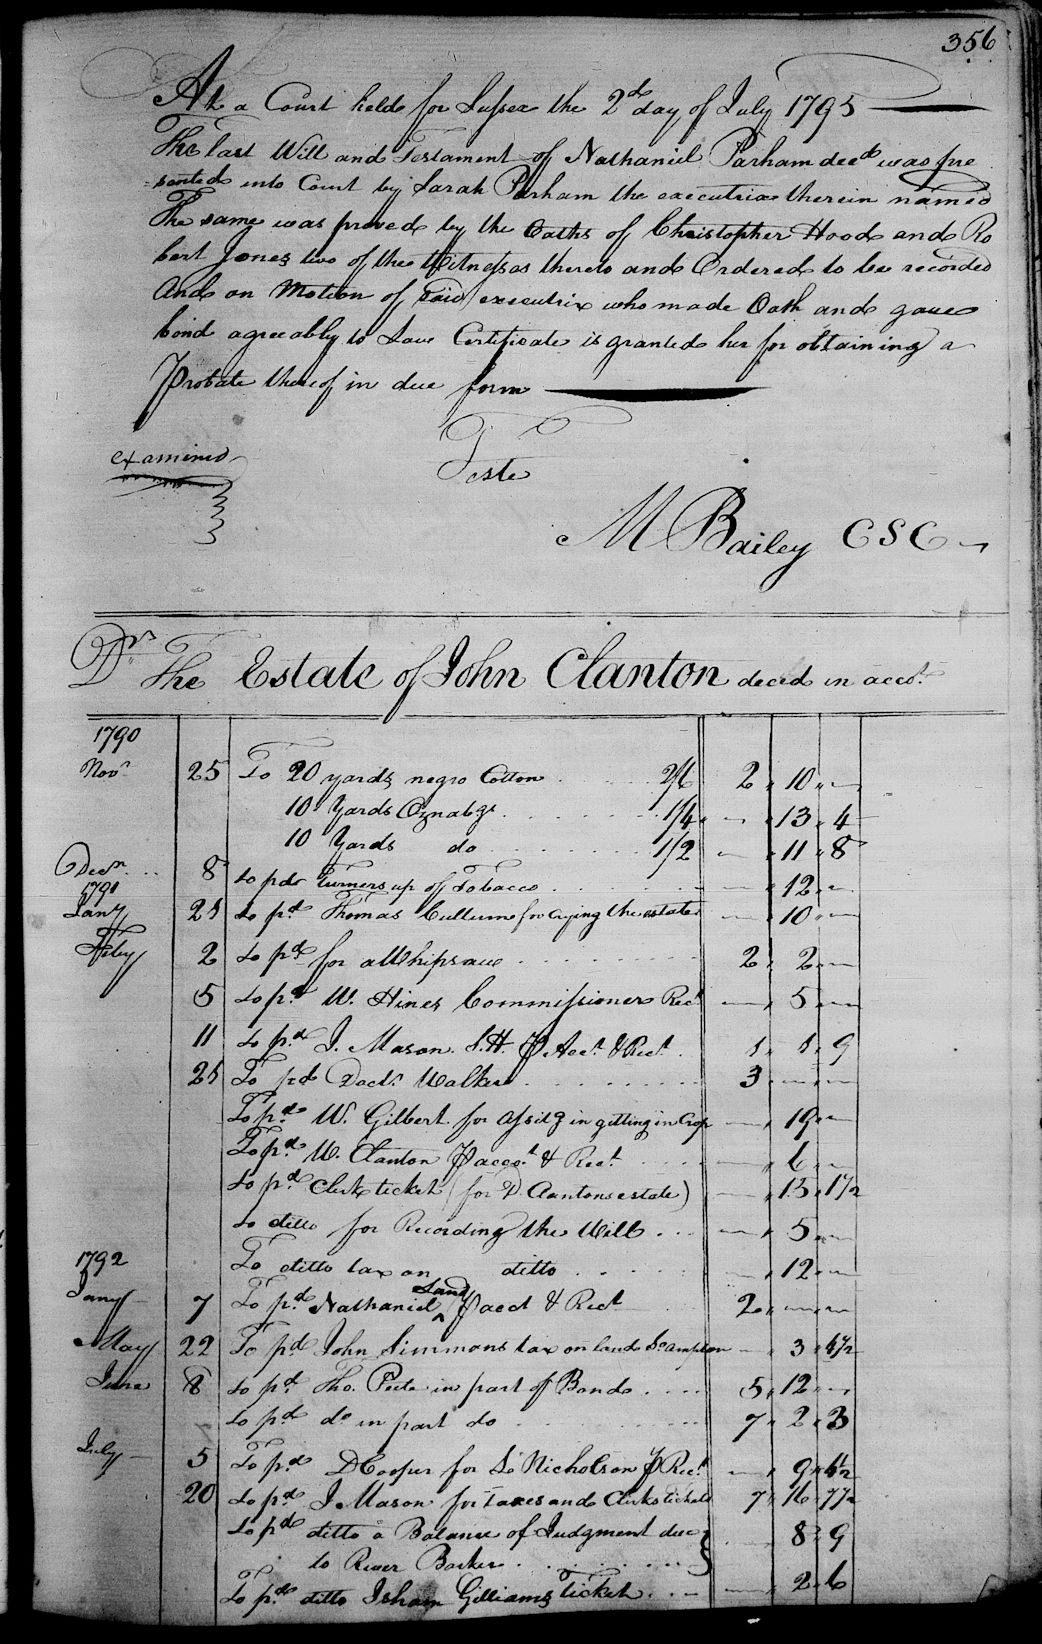 356
At a Court held for Sussex the 2d day of July 1795
The last Will and Testament of Nathaniel Parham decd was pre
=sented into Court by Sarah Parham the executrix therein named
The same was proved by the Oaths of Christopher Hood and Ro
bert Jones two of the Witnesses thereto and Ordered to be recorded
And on Motion of said executrix who made Oath and gave
bond agreeably to Law Certificate is granted her for obtaining a
Probate thereof in due form
examined
Teste
M Bailey C S C
Drs The Estate of John Clanton deced in acco.t
1790
Novr 25 To 20 yards negro Cotton 2/6 2 " 10 " —
10 Yards Oznabgs 1/4 — " 13 " 4
10 Yards do 1/2 — " 11 " 8
Decr 8 to pd Turners up of Tobacco — 12 " —
1791
Jany 25 to pd Thomas Cullum for crying the estate — 10 " —
Feby 2 to pd for a Whipsaw 2 " 2 " —
5 to pd W. Hines Commissioners Rect — " 5 " —
11 to pd J. Mason S.H. ⅌ Acct & Rect 5 " 5 " 9
25 To pd Doctr Walker 3 " — " —
To pd W. Gilbert for Assitg in gitting in Crop — " 19 " —
To pd W. Clanton ⅌ acco.t & Rect — " 6 " —
to pd Clerks ticket (for D. Clantons estate) — " 15 " 1½
to ditto for Recording the Will — " 5 " —
To ditto tax on ditto — " 12 " —
1792
Jany 7 To pd Nathaniel Land ⅌ acct & Rect 2 " — " —
May 22 To pd John Simmons tax on land So ampton — " 3 " 4½
June 8 to pd Tho. Peete in part of Bonds 5 " 12 " —
to pd do in part do 7 " 2 " 3
July 5 To pd D Cooper for Nicholson ⅌ Rect — " 9 " 4½
20 to pd J. Mason for taxes and Clerks tickets 7 " 16 " 7½
to pd ditto a Balance of Judgment due } — 8 " 9
to River Barker
To pd ditto Isham Gilliams ticket — 2 " 6